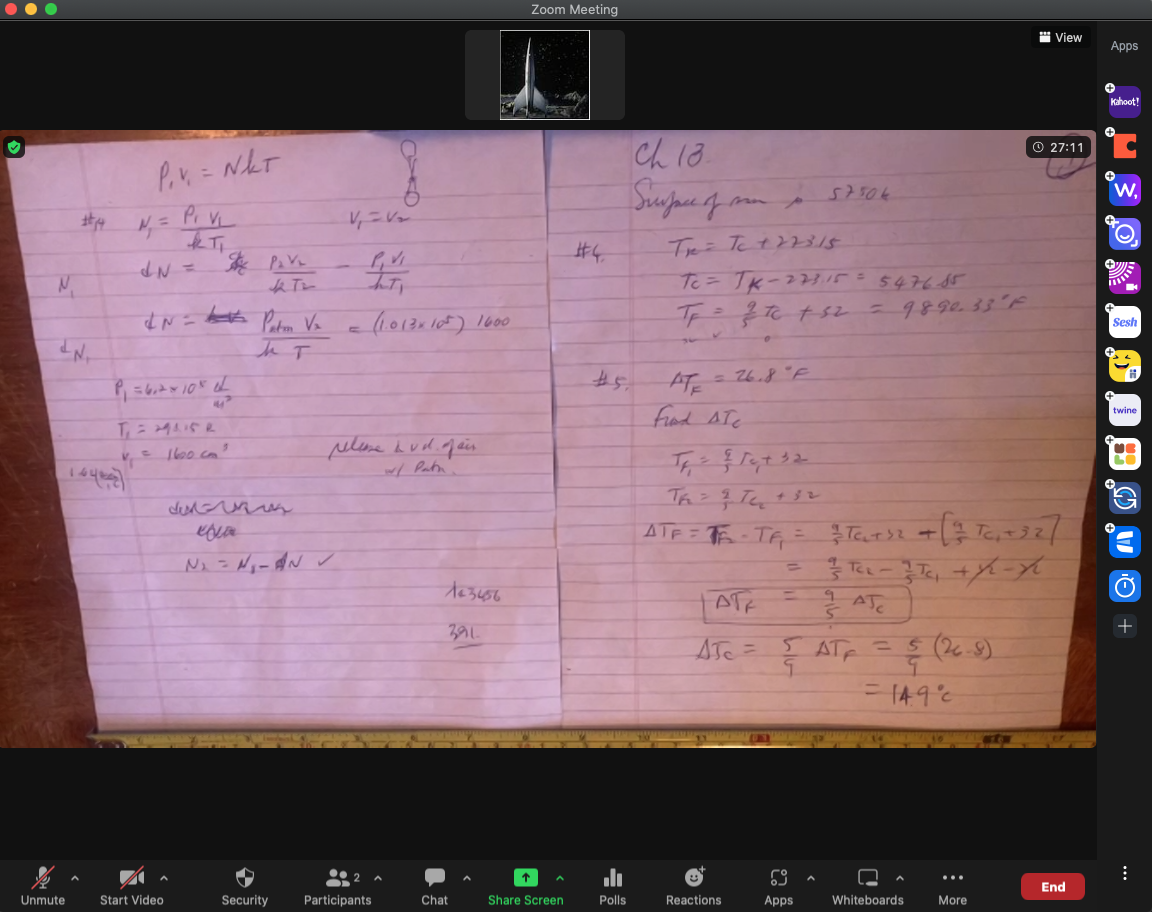 Zoom Meeting
View
Apps
Kahoot!
27:11
P₁ V₁ = NkT
#14 N₁ = P₁ V₁ / k T₁ V₁ = V₂
dN = P₂ V₂ / k T₂ − P₁ V₁ / k T₁
N₁
dN = Patm V₂ / k T = (1.013 x 10⁵) 1600
dN₁
P₁ = 6.2 x 10⁵
T₁ =
V₁ = 1600 cm³
release
w/ Patm.
N₂ = N₁ − dN ✓
391.
Ch 13.
Surface of sun is 5750 k
#4. TK = TC + 273.15
TC = TK − 273.15 = 5476.85
TF = 9/5 TC + 32 = 9890.33 °F
#5. ΔTF = 26.8 °F
Find ΔTC
TF₁ = 9/5 TC₁ + 32
TF₂ = 9/5 TC₂ + 32
ΔTF = TF₂ − TF₁ = 9/5 TC₂ + 32 − [9/5 TC₁ + 32]
= 9/5 TC₂ − 9/5 TC₁ + 32 − 32
ΔTF = 9/5 ΔTC
ΔTC = 5/9 ΔTF = 5/9 (26.8)
= 14.9 °C
W,
Sesh
twine
Unmute
Start Video
Security
2
Participants
Chat
Share Screen
Polls
Reactions
Apps
Whiteboards
More
End